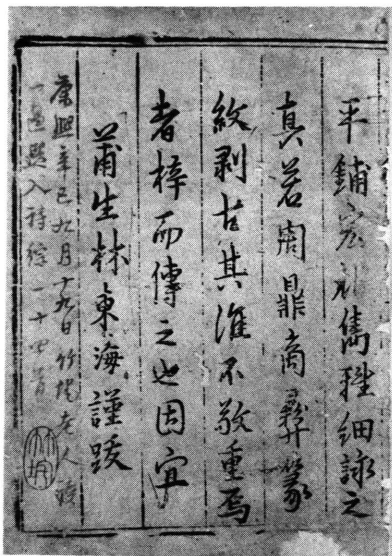 平鋪宏雋細詠之
真若周鼎商彝篆
紋剥古其誰不敬重焉
者梓而傳之也因宜
莆生林東海謹跋
康熙辛巳九月十九日竹垞老人讀
一過選入詩綜一十四首
竹垞